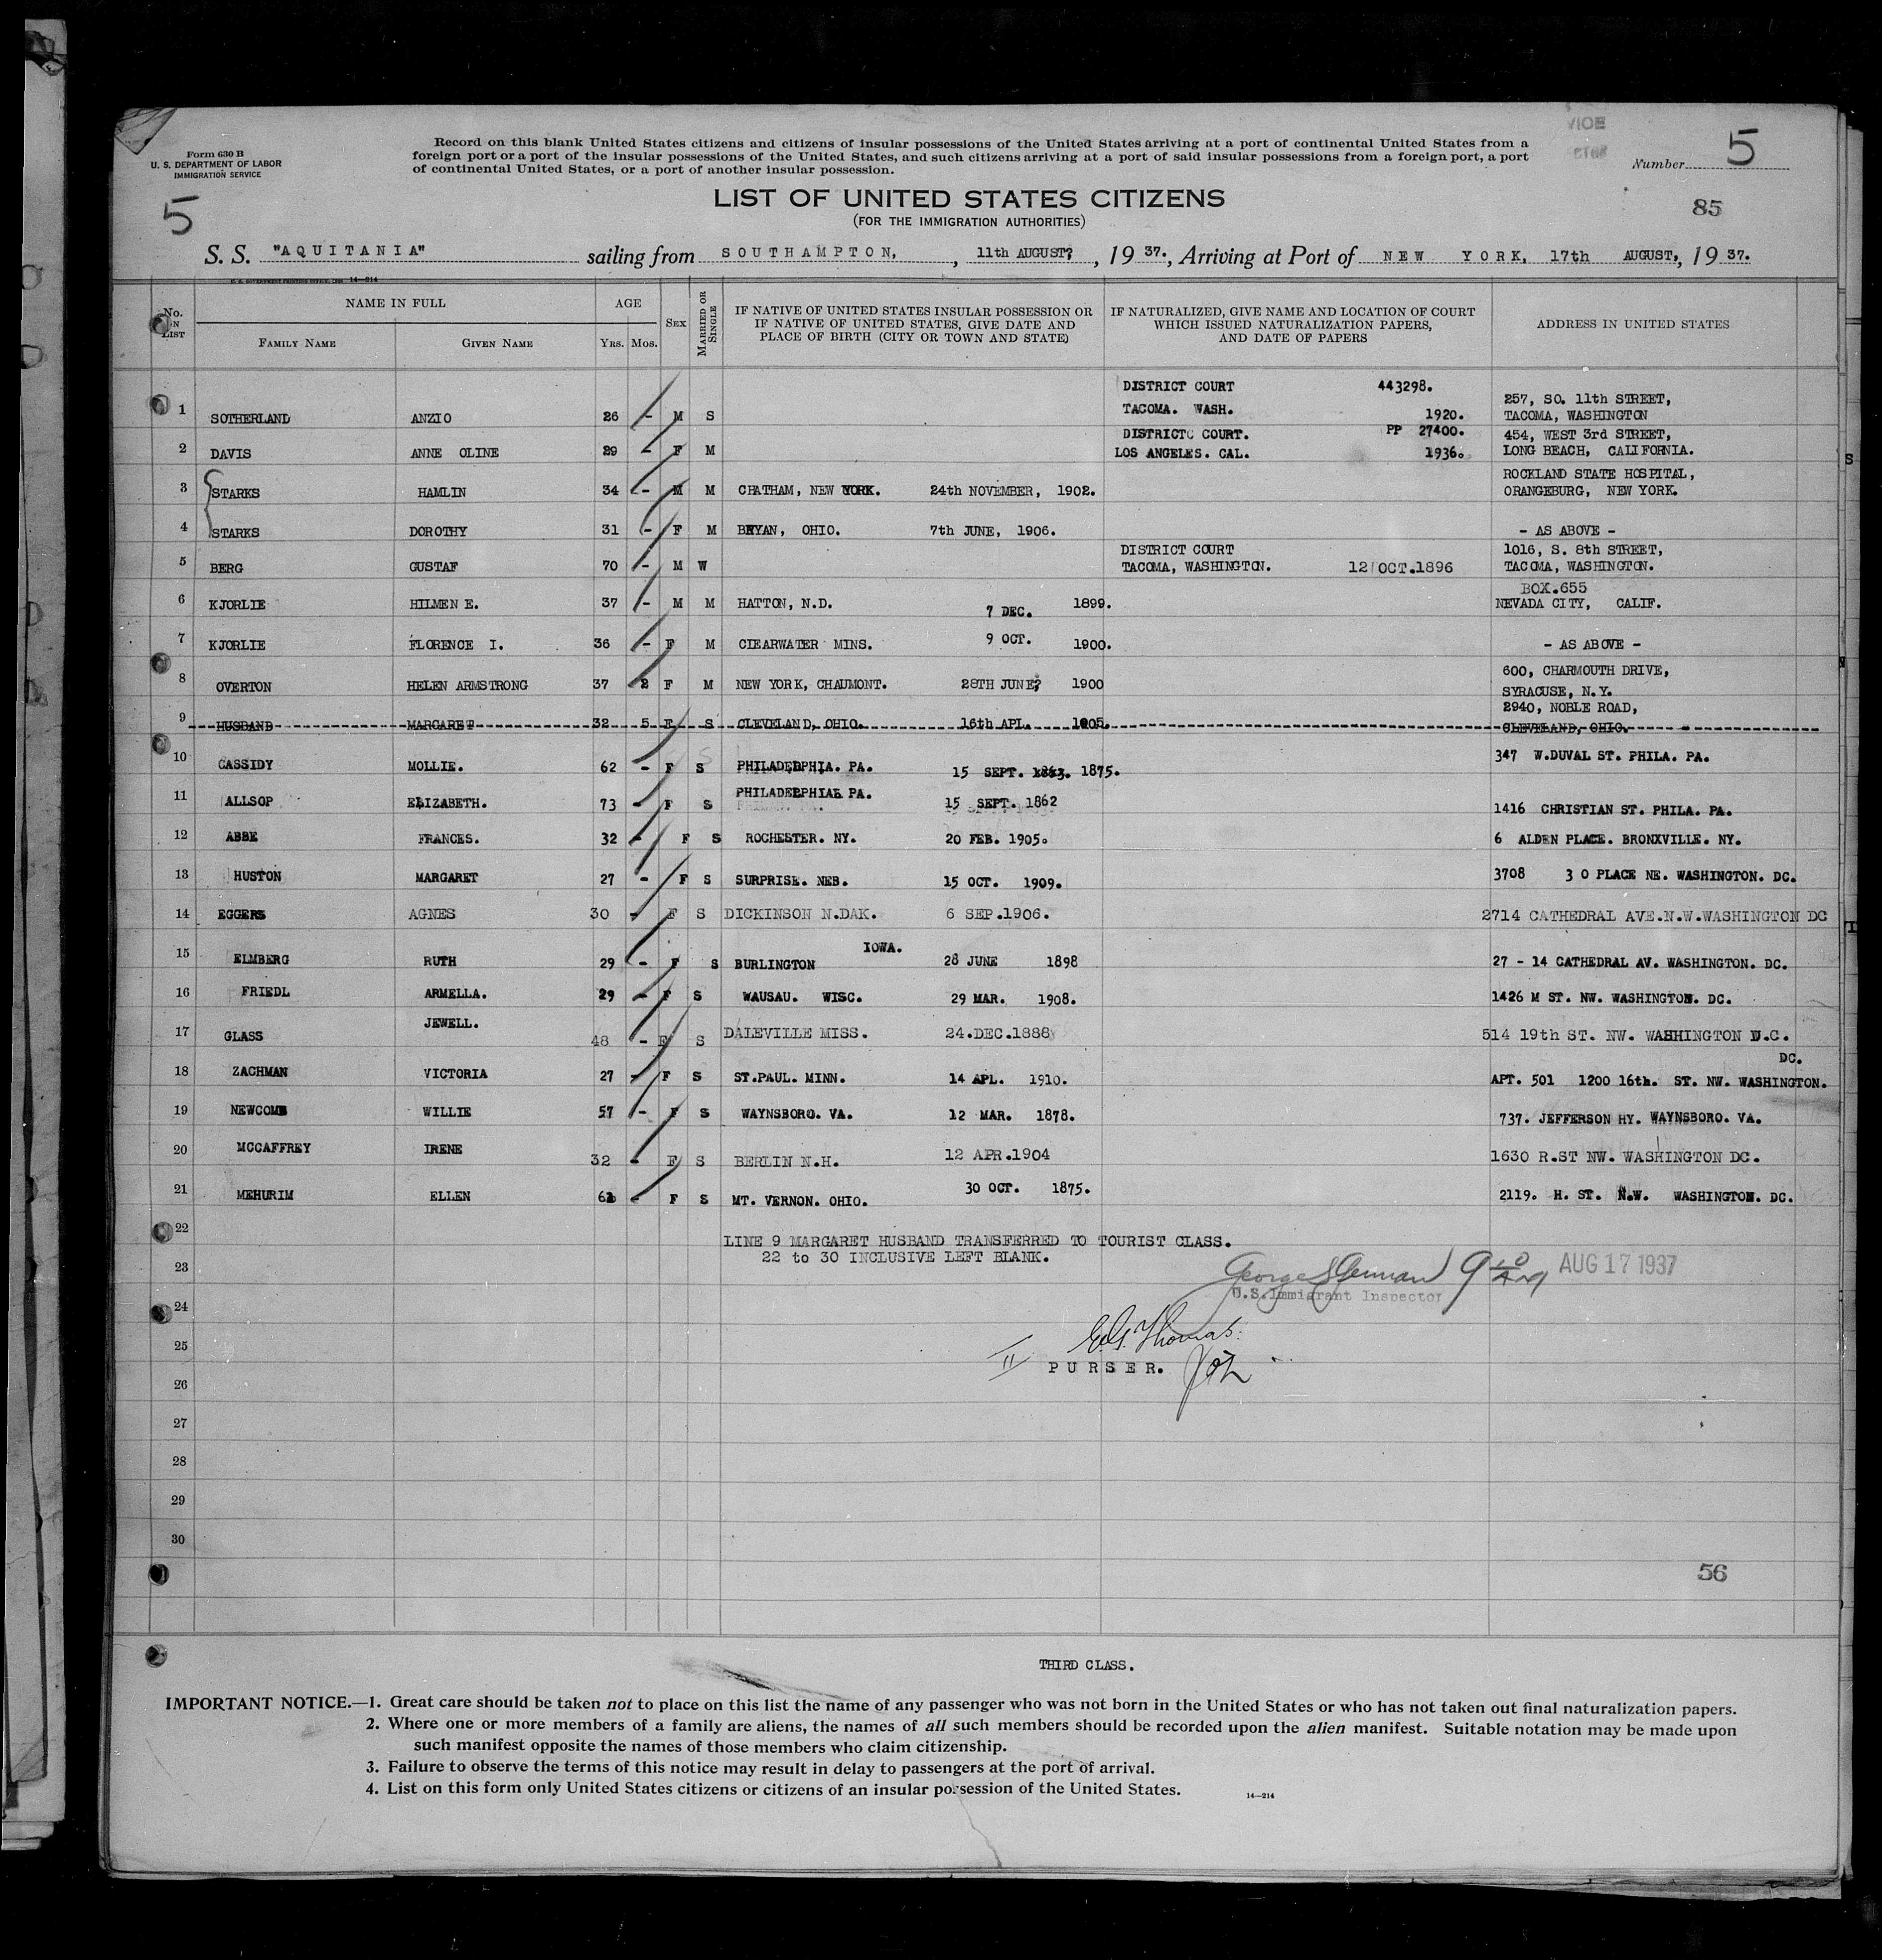 Form 630 B
U. S. DEPARTMENT OF LABOR
IMMIGRATION SERVICE
Record on this blank United States citizens and citizens of insular possessions of the United States arriving at a port of continental United States from a
foreign port or a port of the insular possessions of the United States, and such citizens arriving at a port of said insular possessions from a foreign port, a port
of continental United States, or a port of another insular possession.
Number 5
LIST OF UNITED STATES CITIZENS
(FOR THE IMMIGRATION AUTHORITIES)
85
5
S. S. "AQUITANIA" sailing from SOUTHAMPTON, , 11th AUGUST, , 19 37., Arriving at Port of NEW YORK, 17th AUGUST, , 19 37.
14—214
No. ON LIST NAME IN FULL FAMILY NAME GIVEN NAME AGE YRS. MOS. SEX MARRIED OR SINGLE IF NATIVE OF UNITED STATES INSULAR POSSESSION OR IF NATIVE OF UNITED STATES, GIVE DATE AND PLACE OF BIRTH (CITY OR TOWN AND STATE) IF NATURALIZED, GIVE NAME AND LOCATION OF COURT WHICH ISSUED NATURALIZATION PAPERS, AND DATE OF PAPERS ADDRESS IN UNITED STATES
DISTRICT COURT 443298. 257, SO. 11th STREET,
1 SOTHERLAND ANZIO 26 - M S TACOMA. WASH. 1920. TACOMA, WASHINGTON
DISTRICT COURT. PP 27400. 454, WEST 3rd STREET,
2 DAVIS ANNE OLINE 29 - F M LOS ANGELES. CAL. 1936. LONG BEACH, CALIFORNIA.
ROCKLAND STATE HOSPITAL,
3 STARKS HAMLIN 34 - M M CHATHAM, NEW YORK. 24th NOVEMBER, 1902. ORANGEBURG, NEW YORK.
4 STARKS DOROTHY 31 - F M BRYAN, OHIO. 7th JUNE, 1906. - AS ABOVE -
DISTRICT COURT 1016, S. 8th STREET,
5 BERG GUSTAF 70 - M W TACOMA, WASHINGTON. 12 OCT.1896 TACOMA, WASHINGTON.
BOX.655
6 KJORLIE HILMEN E. 37 - M M HATTON, N.D. 7 DEC. 1899. NEVADA CITY, CALIF.
7 KJORLIE FLORENCE I. 36 - F M CIEARWATER MINS. 9 OCT. 1900. - AS ABOVE -
600, CHARMOUTH DRIVE,
8 OVERTON HELEN ARMSTRONG 37 2 F M NEW YORK, CHAUMONT. 28TH JUNE, 1900 SYRACUSE, N.Y.
2940, NOBLE ROAD,
9 HUSBAND MARGARET 32 5 F S CLEVELAND, OHIO. 16th APL. 1905. CLEVELAND, OHIO.
10 CASSIDY MOLLIE. 62 - F S PHILADELPHIA. PA. 15 SEPT. 1875. 347 W.DUVAL ST. PHILA. PA.
11 ALLSOP ELIZABETH. 73 - F S PHILADELPHIA PA. 15 SEPT. 1862 1416 CHRISTIAN ST. PHILA. PA.
12 ABBE FRANCES. 32 - F S ROCHESTER. NY. 20 FEB. 1905. 6 ALDEN PLACE. BRONXVILLE. NY.
13 HUSTON MARGARET 27 - F S SURPRISE. NEB. 15 OCT. 1909. 3708 3 0 PLACE NE. WASHINGTON. DC.
14 EGGERS AGNES 30 - F S DICKINSON N.DAK. 6 SEP.1906. 2714 CATHEDRAL AVE.N.W.WASHINGTON DC
IOWA.
15 ELMBERG RUTH 29 - F S BURLINGTON 28 JUNE 1898 27 - 14 CATHEDRAL AV. WASHINGTON. DC.
16 FRIEDL ARMELLA. 29 - F S WAUSAU. WISC. 29 MAR. 1908. 1426 M ST. NW. WASHINGTON. DC.
17 GLASS JEWELL. 48 - F S DALEVILLE MISS. 24.DEC.1888 514 19th ST. NW. WASHINGTON D.C.
DC.
18 ZACHMAN VICTORIA 27 - F S ST.PAUL. MINN. 14 APL. 1910. APT. 501 1200 16th. ST. NW. WASHINGTON.
19 NEWCOMB WILLIE 57 - F S WAYNSBORO. VA. 12 MAR. 1878. 737. JEFFERSON HY. WAYNSBORO. VA.
20 MCCAFFREY IRENE 32 - F S BERLIN N.H. 12 APR.1904 1630 R.ST NW. WASHINGTON DC.
21 MEHURIM ELLEN 61 - F S MT. VERNON. OHIO. 30 OCT. 1875. 2119. H. ST. N.W. WASHINGTON. DC.
22
LINE 9 MARGARET HUSBAND TRANSFERRED TO TOURIST CLASS.
22 to 30 INCLUSIVE LEFT BLANK.
23 AUG 17 1937
U.S. Immigrant Inspector
24
25 Thomas.
PURSER.
26
27
28
29
30
56
THIRD CLASS.
IMPORTANT NOTICE.—1. Great care should be taken not to place on this list the name of any passenger who was not born in the United States or who has not taken out final naturalization papers.
2. Where one or more members of a family are aliens, the names of all such members should be recorded upon the alien manifest. Suitable notation may be made upon
such manifest opposite the names of those members who claim citizenship.
3. Failure to observe the terms of this notice may result in delay to passengers at the port of arrival.
4. List on this form only United States citizens or citizens of an insular possession of the United States.
14—214